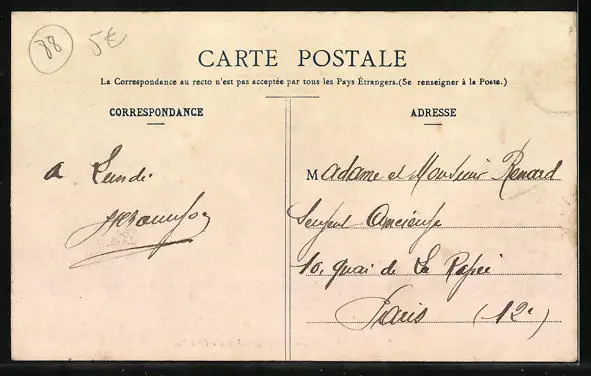 88 5€
CARTE POSTALE
La Correspondance au recto n'est pas acceptée par tous les Pays Étrangers.(Se renseigner à la Poste.)
CORRESPONDANCE
ADRESSE
a Lundi
Madame et Monsieur Renard
10, quai de La Rapée
Paris (12e)